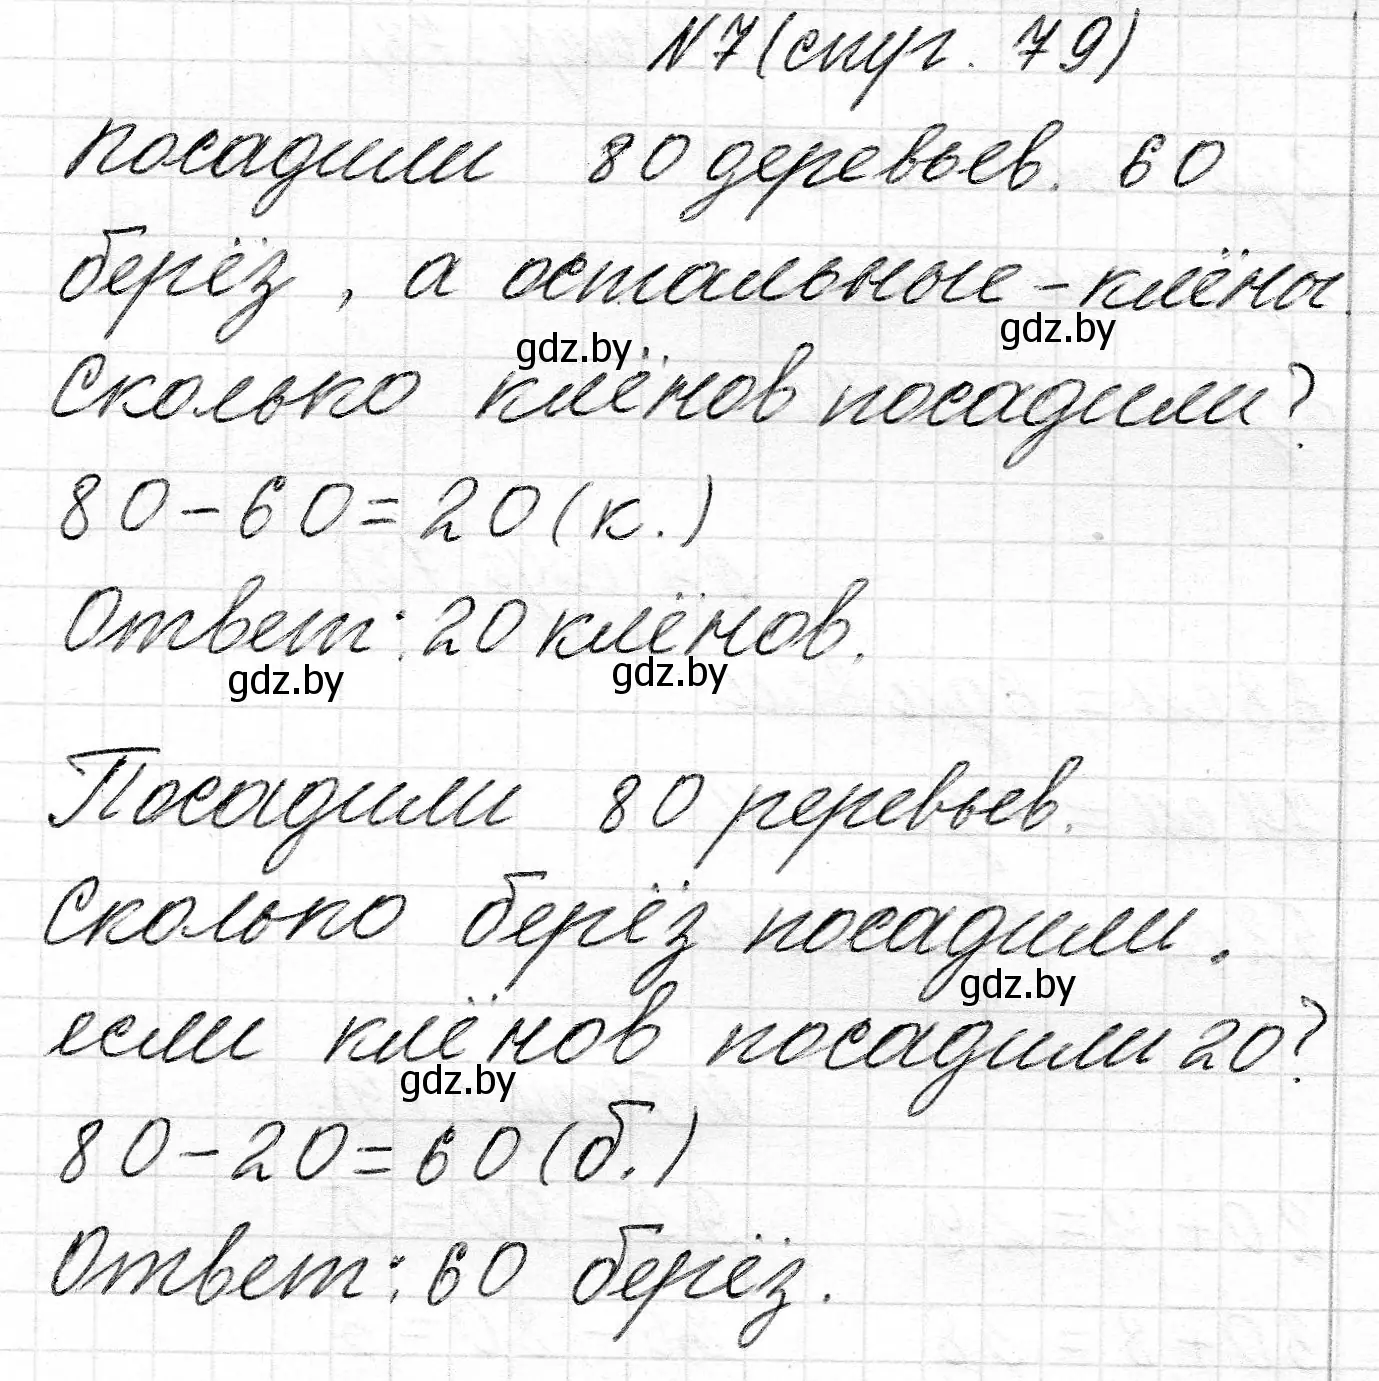 №7(стр. 79)
посадили 80 деревьев. 60
берёз, а остальные - клёны.
gdz.by
gdz.by
Сколько клёнов посадили?
80-60=20(к.)
Ответ: 20 клёнов.
gdz.by
gdz.by
Посадили 80 реревьев.
Сколько берёз посадили.
gdz.by
если клёнов посадили 20?
gdz.by
80-20=60(б.)
Ответ: 60 берёз.